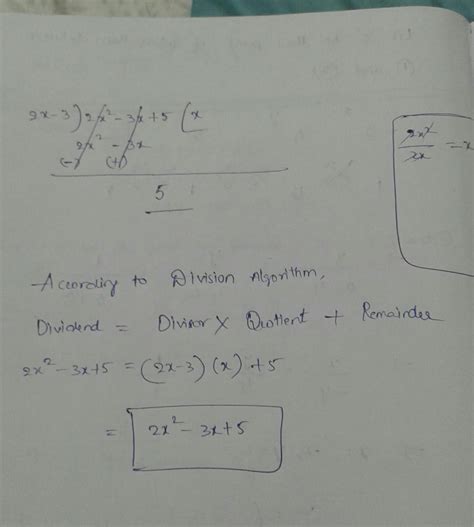 2x-3) 2x² - 3x + 5 (x
2x² - 3x
(-) (+)
5
2x²/2x = x
According to Division Algorithm,
Dividend = Divisor X Quotient + Remainder
2x² - 3x + 5 = (2x-3) (x) + 5
= 2x² - 3x + 5